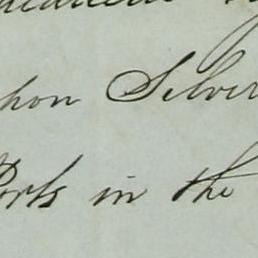 hon Silver
Ports in the